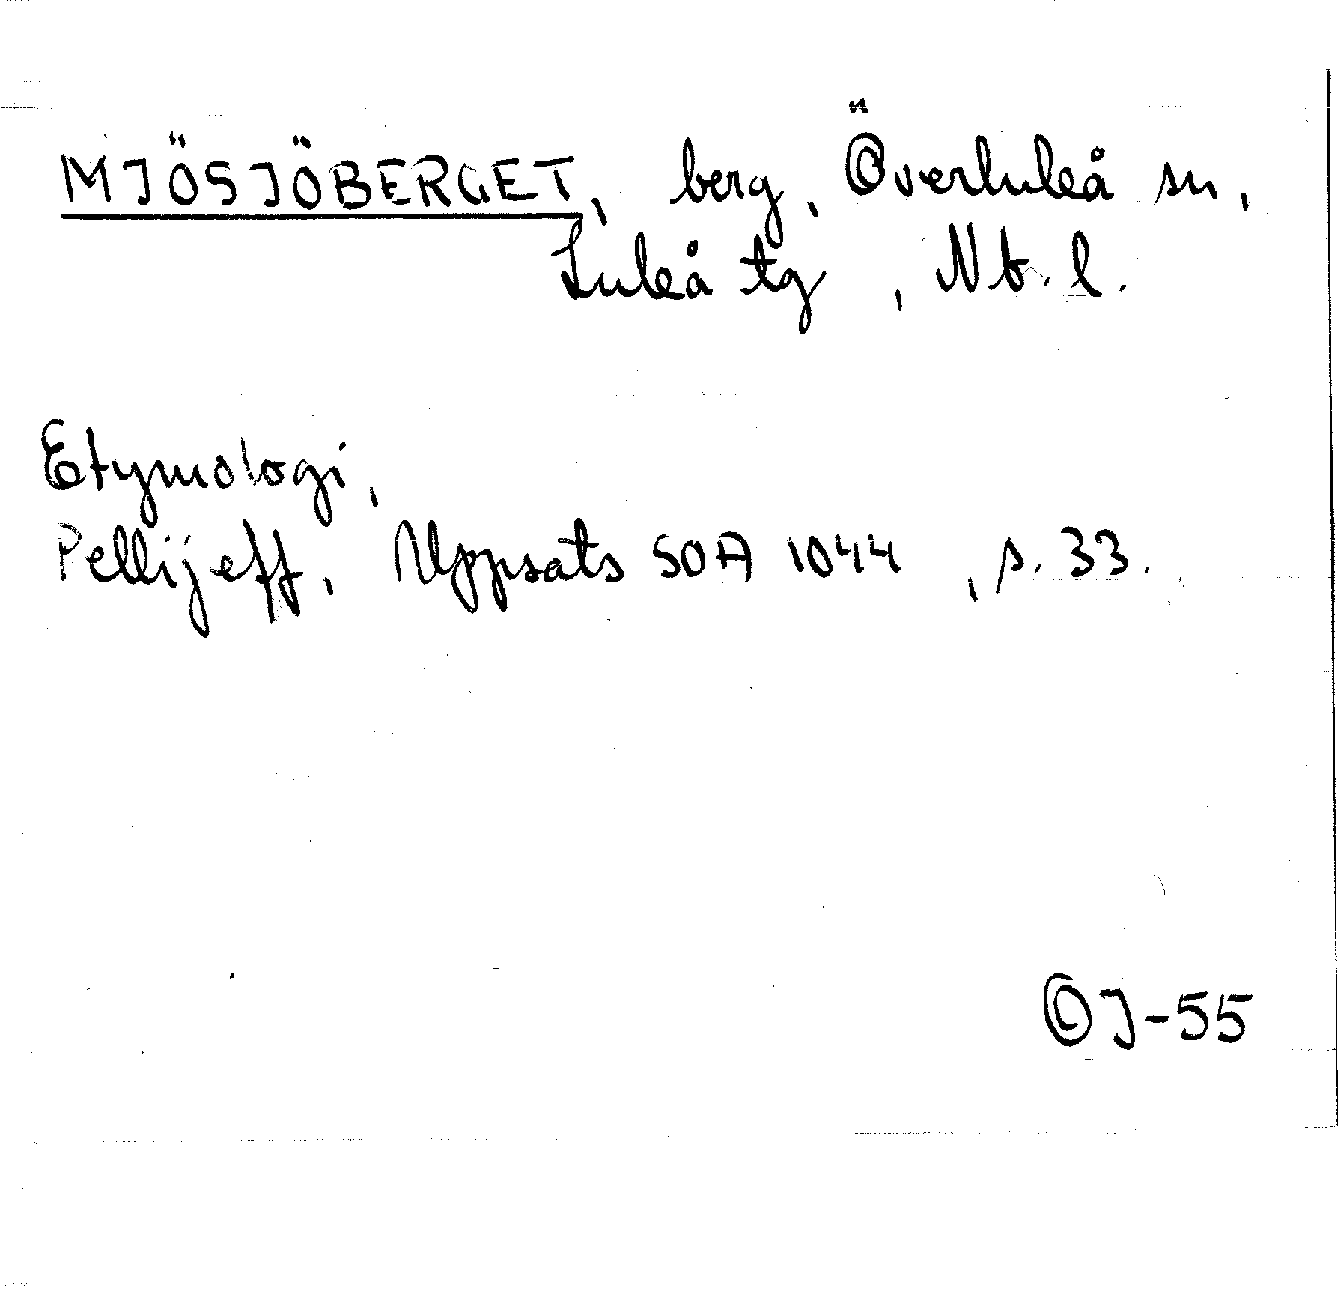 MJÖSJÖBERGET, berg, Överluleå sn,
Luleå tg, Nb. l.
Etymologi,
Pellijeff, Uppsats SOA 1044, s. 33.
OJ-55